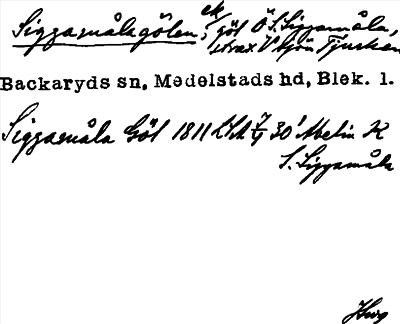 Siggamålagölen, ek göl Ö S. Siggamåla,
strax V sjön Tjurken
Backaryds sn, Medelstads hd, Blek. l.
Siggamåla Göl 1811 30' Melin K
S. Siggamåla